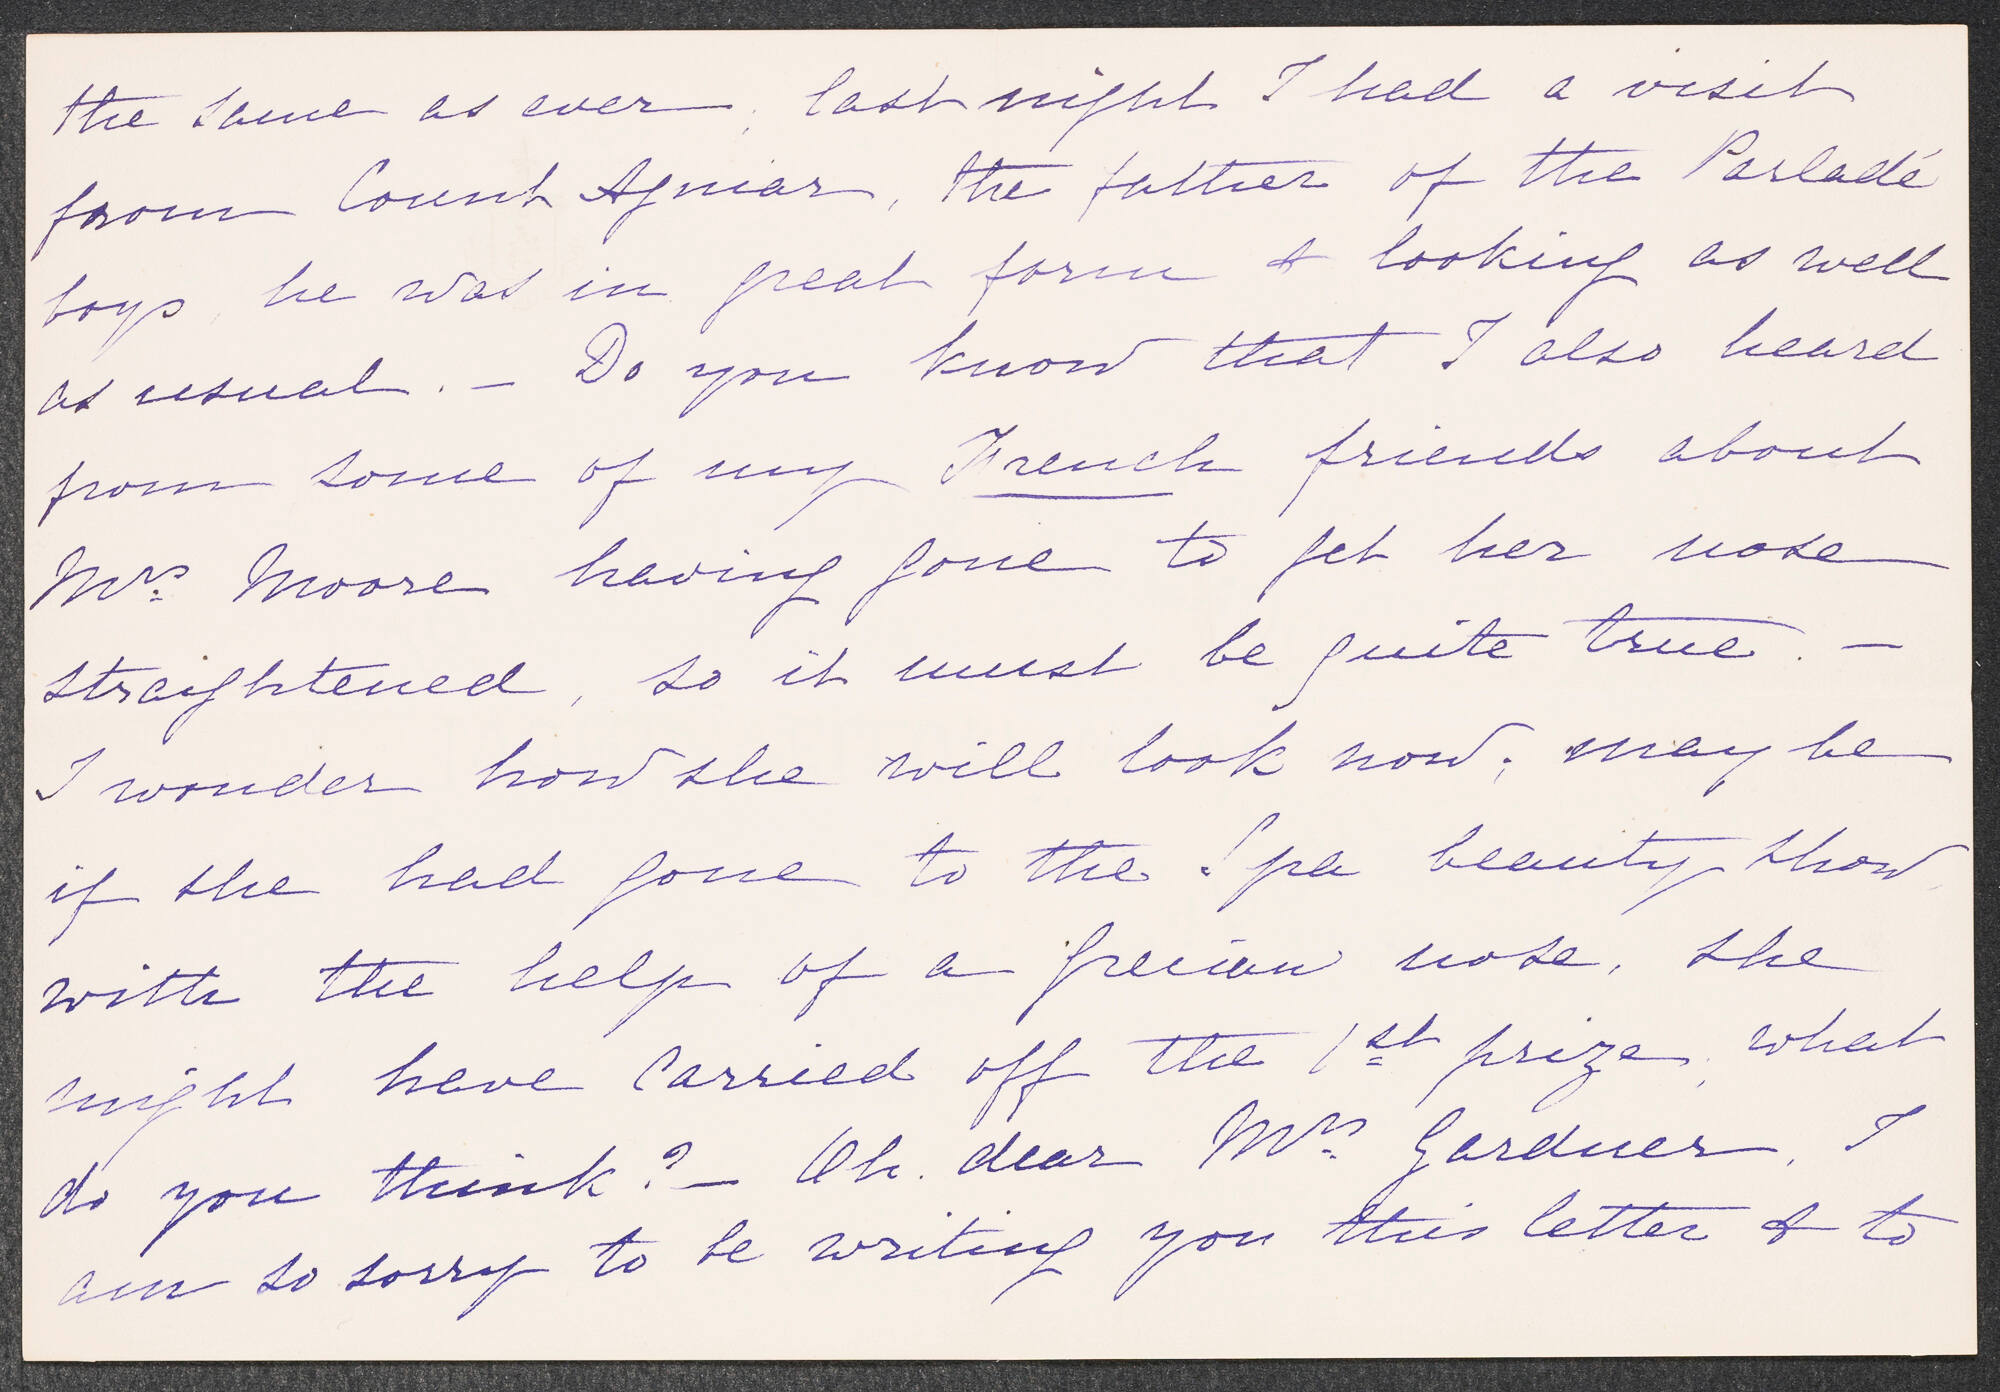 the same as ever; last night I had a visit
from Count Aguiar, the father of the Parladé
boys, he was in great form & looking as well
as usual. – Do you know that I also heard
from some of my French friends about
Mrs. Moore having gone to get her nose
straightened, so it must be quite true. –
I wonder how she will look now; may be
if she had gone to the Spa beauty show,
with the help of a grecian nose, she
might have carried off the 1st prize, what
do you think? – Oh. dear Mrs. Gardner, I
am so sorry to be writing you this letter & to